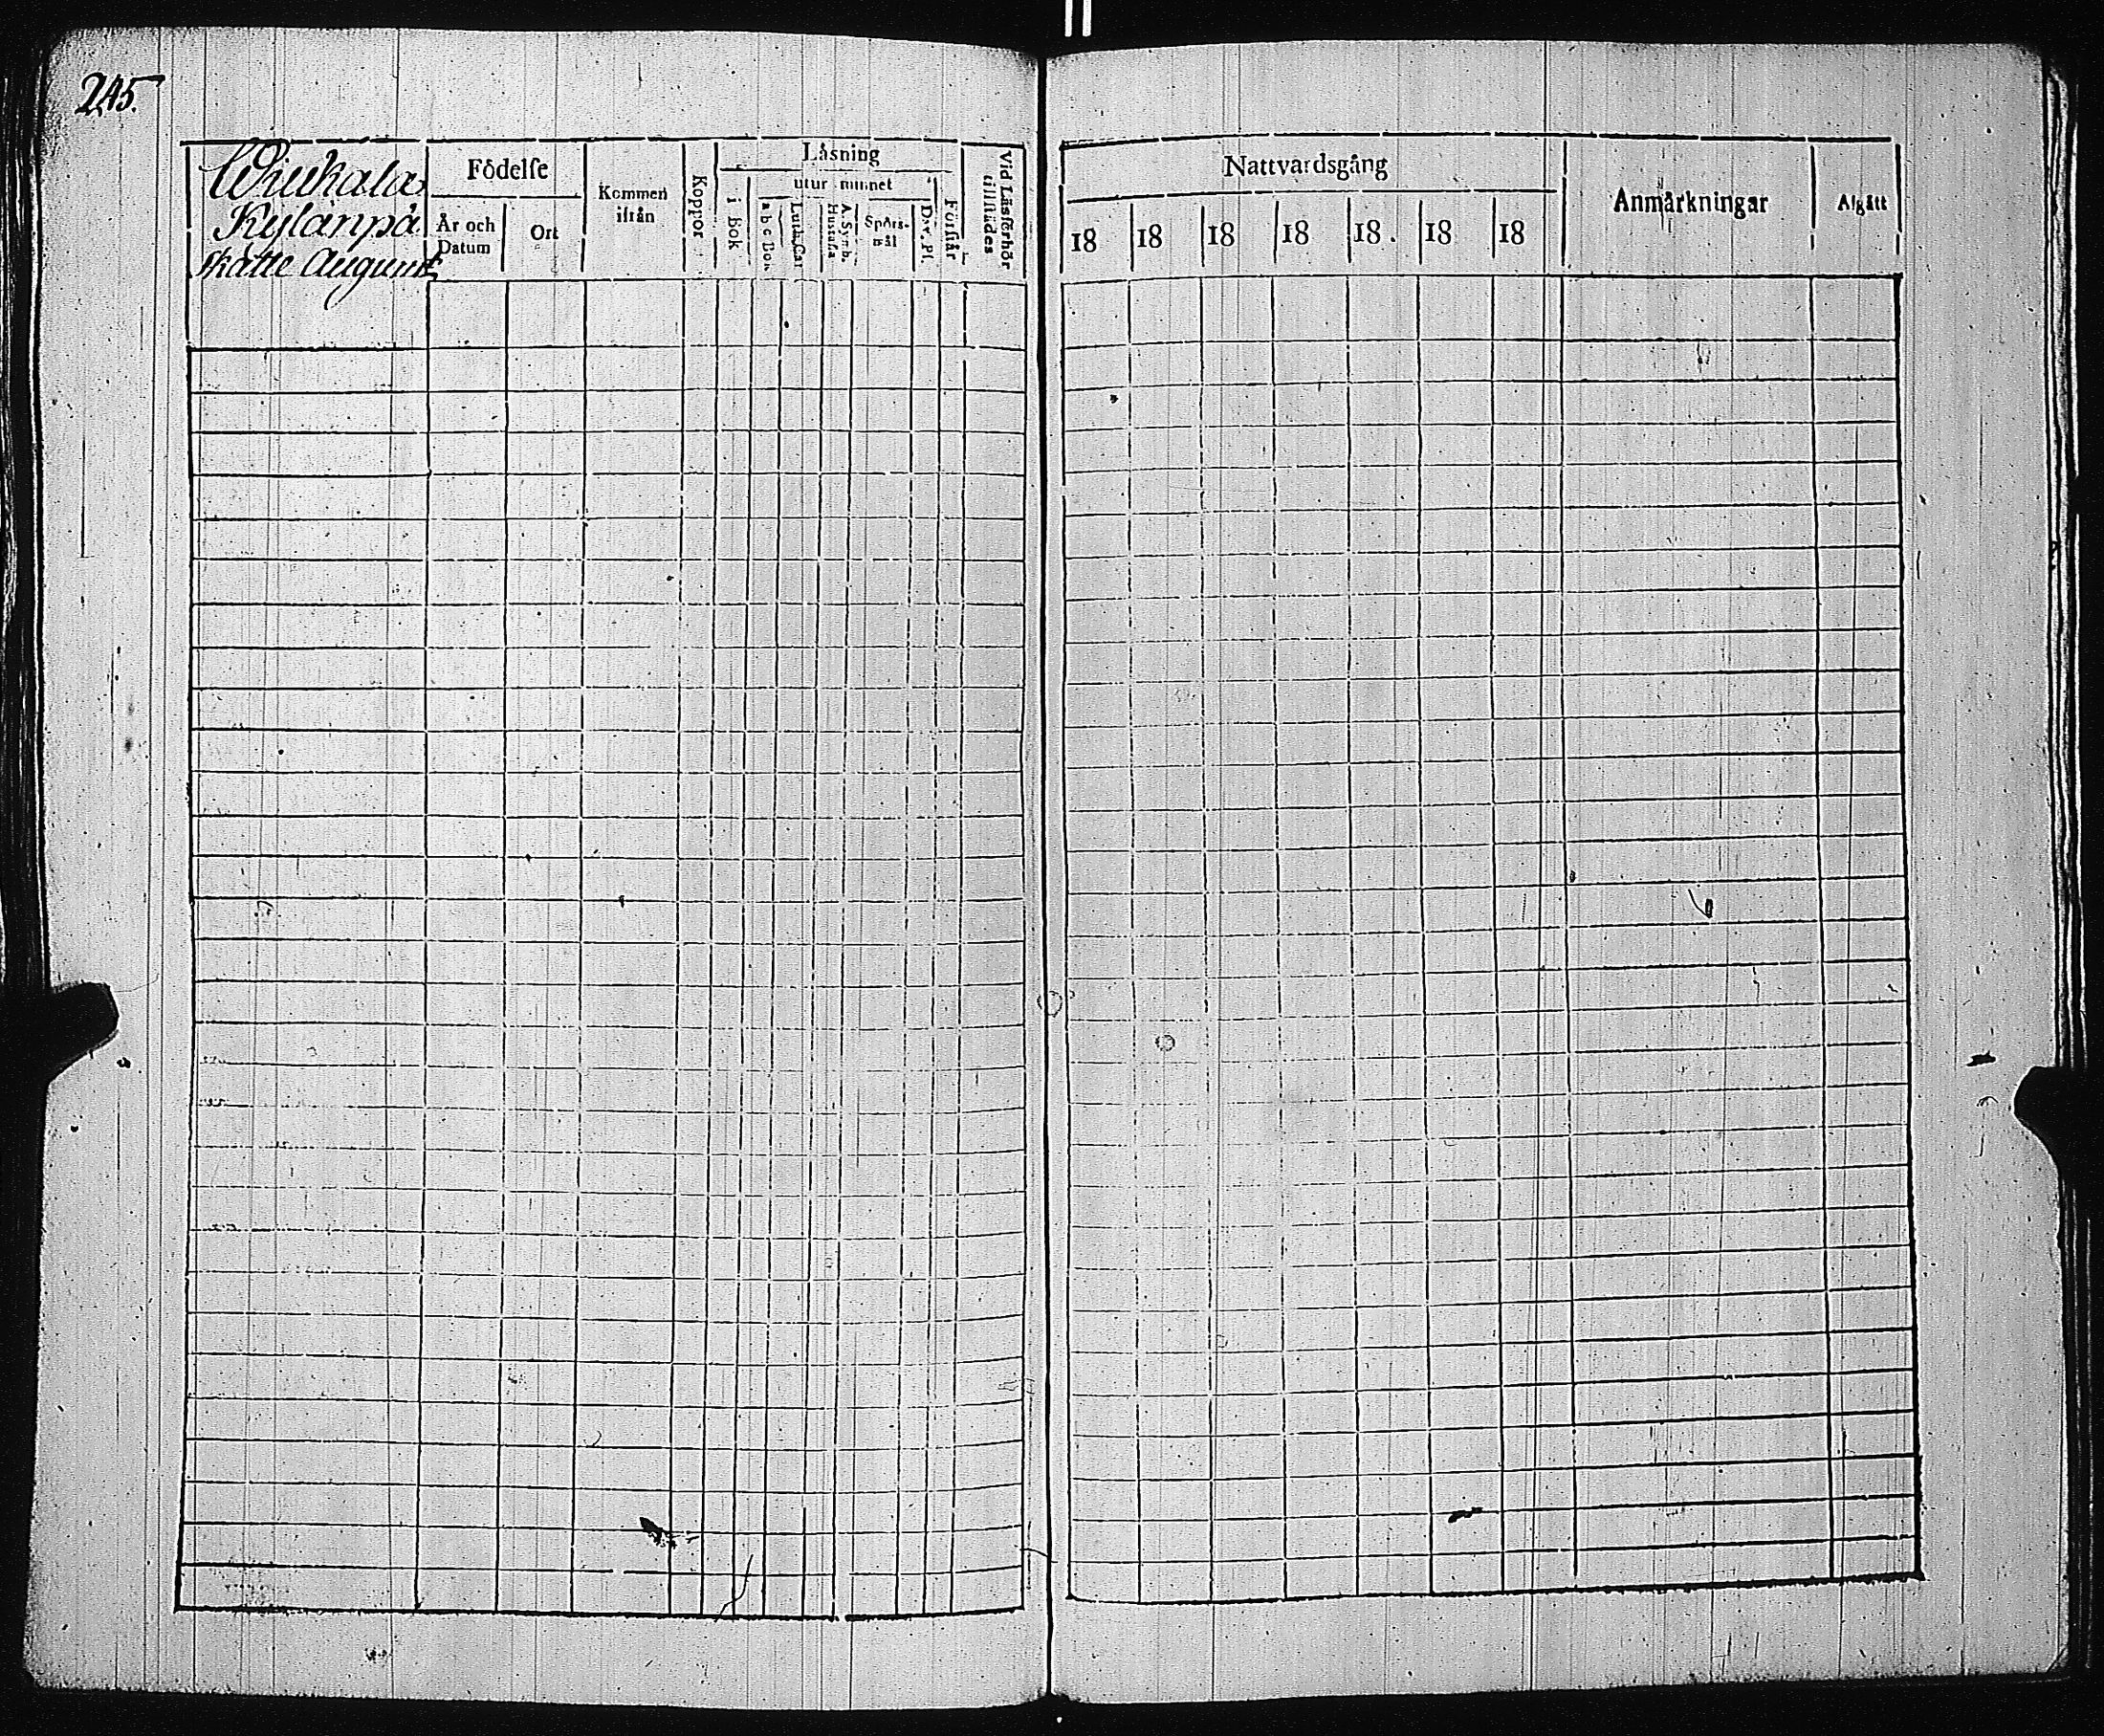 245.
Wiukala
Kylänpä
skatte Augment
Födelse
År och Datum
Ort
Kommen ifrån
Koppor
Läsning
i bok
utur minnet
a b c Bok
Luth. Cat
A. Symb. Hustafla
Spörs-mål
Dav. Ps.
Förstår
Vid Läsförhör tillstädes
Nattvardsgång
18 18 18 18 18. 18 18
Anmärkningar
Afgått